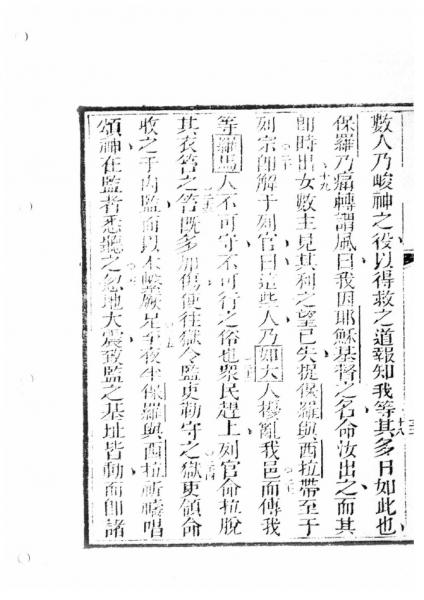 數人乃峻神之役以得救之道報知我等其多日如此也
保羅乃痛轉謂風曰我因耶穌基督之名命汝出之而其
卽時出女數主見其利之望已失捉保羅與西拉帶至于
列宗卽解于列官曰這些人乃如大人擾亂我邑而傳我
等羅馬人不可守不可行之俗也衆民趕上列官命拉脫
其衣笞之笞旣多加傷使往獄令監吏勒守之獄吏領命
收之于內監而以木繫厥足至夜半保羅與西拉祈禱唱
頌神在監者悉聽之忽地大震致監之基址皆動而卽諸